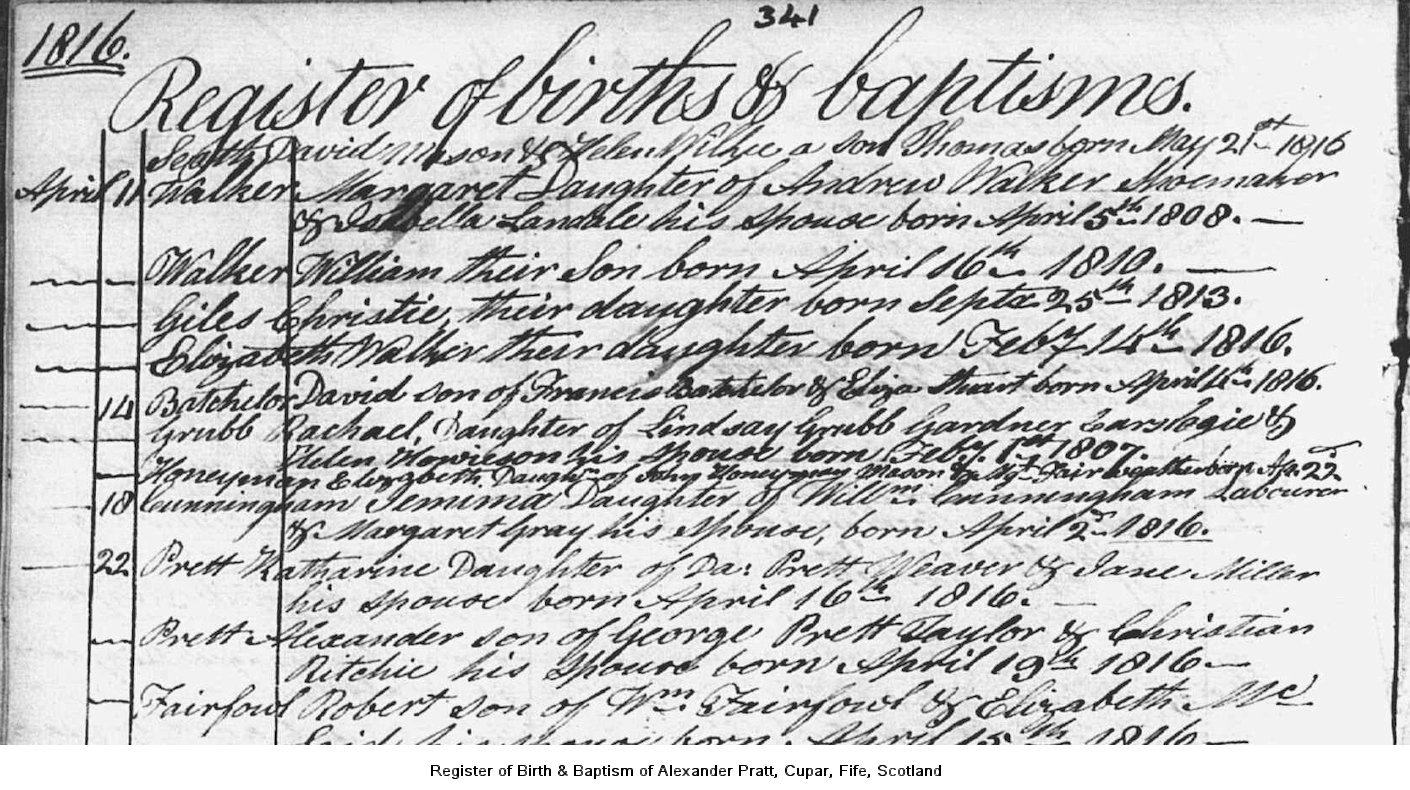 341
1816.
Register of births & baptisms.
Scott David Mason & Helen Wilkie a son Thomas born May 21st 1816
April 11 Walker Margaret Daughter of Andrew Walker Shoemaker
& Isabella Landale his spouse born April 5th 1808. —
— — Walker William their Son born April 16th 1810. —
— — Giles Christie, their daughter born Septr 25th 1813.
— — Elizabeth Walker their daughter born Feby 14th 1816.
— 14 Batchelor David son of Francis Batchelor & Eliza Stuart born April 4th 1816.
— — Grubb Rachael, Daughter of Lindsay Grubb Gardner Carslogie &
Helen Howieson his spouse born Feby. 1st 1807.
— Honeyman Elizabeth Daughter of John Honeyman Mason & Mgt Fairweather born Ap. 22d
18 Cunningham Jemima Daughter of Willm Cunningham Labourer
& Margaret Gray his spouse, born April 2d 1816.
— 22 Prett Katharine Daughter of Da: Prett Weaver & Jane Miller
his spouse born April 16th 1816. —
— Prett Alexander son of George Prett Taylor & Christian
Ritchie his spouse born April 19th 1816 —
— Fairfowl Robert son of Wm Fairfowl & Elizabeth Mc
his spouse born April 15th 1816 —
Register of Birth & Baptism of Alexander Pratt, Cupar, Fife, Scotland